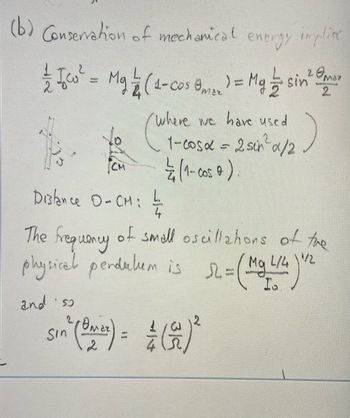 (b) Conservation of mechanical energy implies
1/2 I₀ω² = Mg L/4 (1-cos θmax) = Mg L/2 sin² θmax/2
(where we have used
1-cosα = 2 sin² α/2)
O
CM
L/4 (1-cos θ).
Distance O-CM: L/4
The frequency of small oscillations of the
physical pendulum is Ω = (Mg L/4 / I₀)^1/2
and so
sin² (θmax/2) = 1/4 (ω/Ω)²